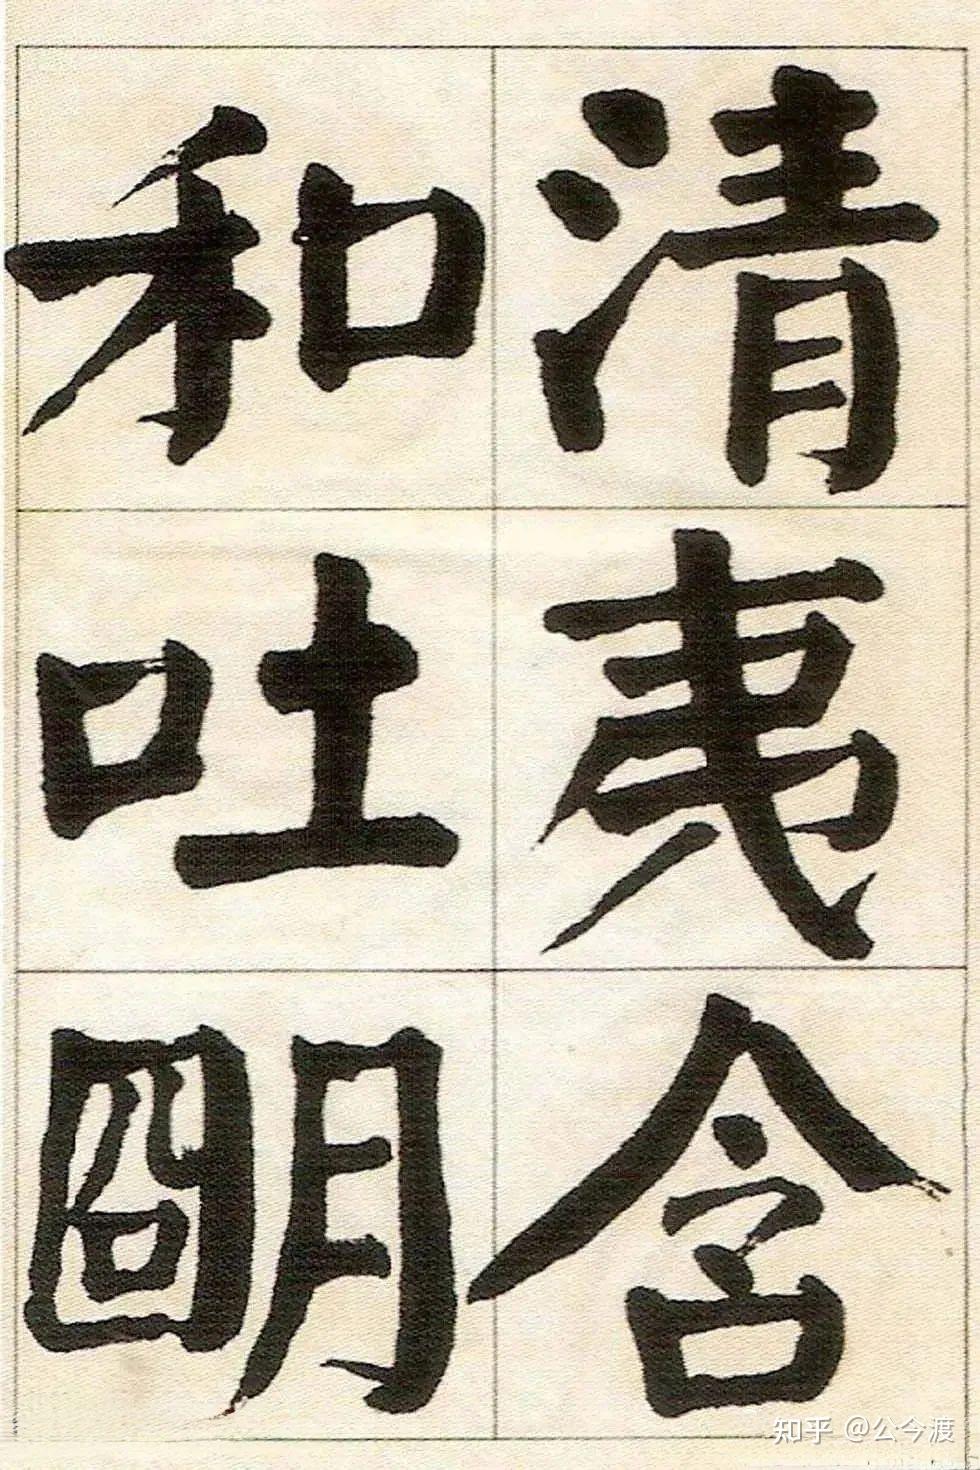 清夷含
和吐朙
知乎 @公今渡